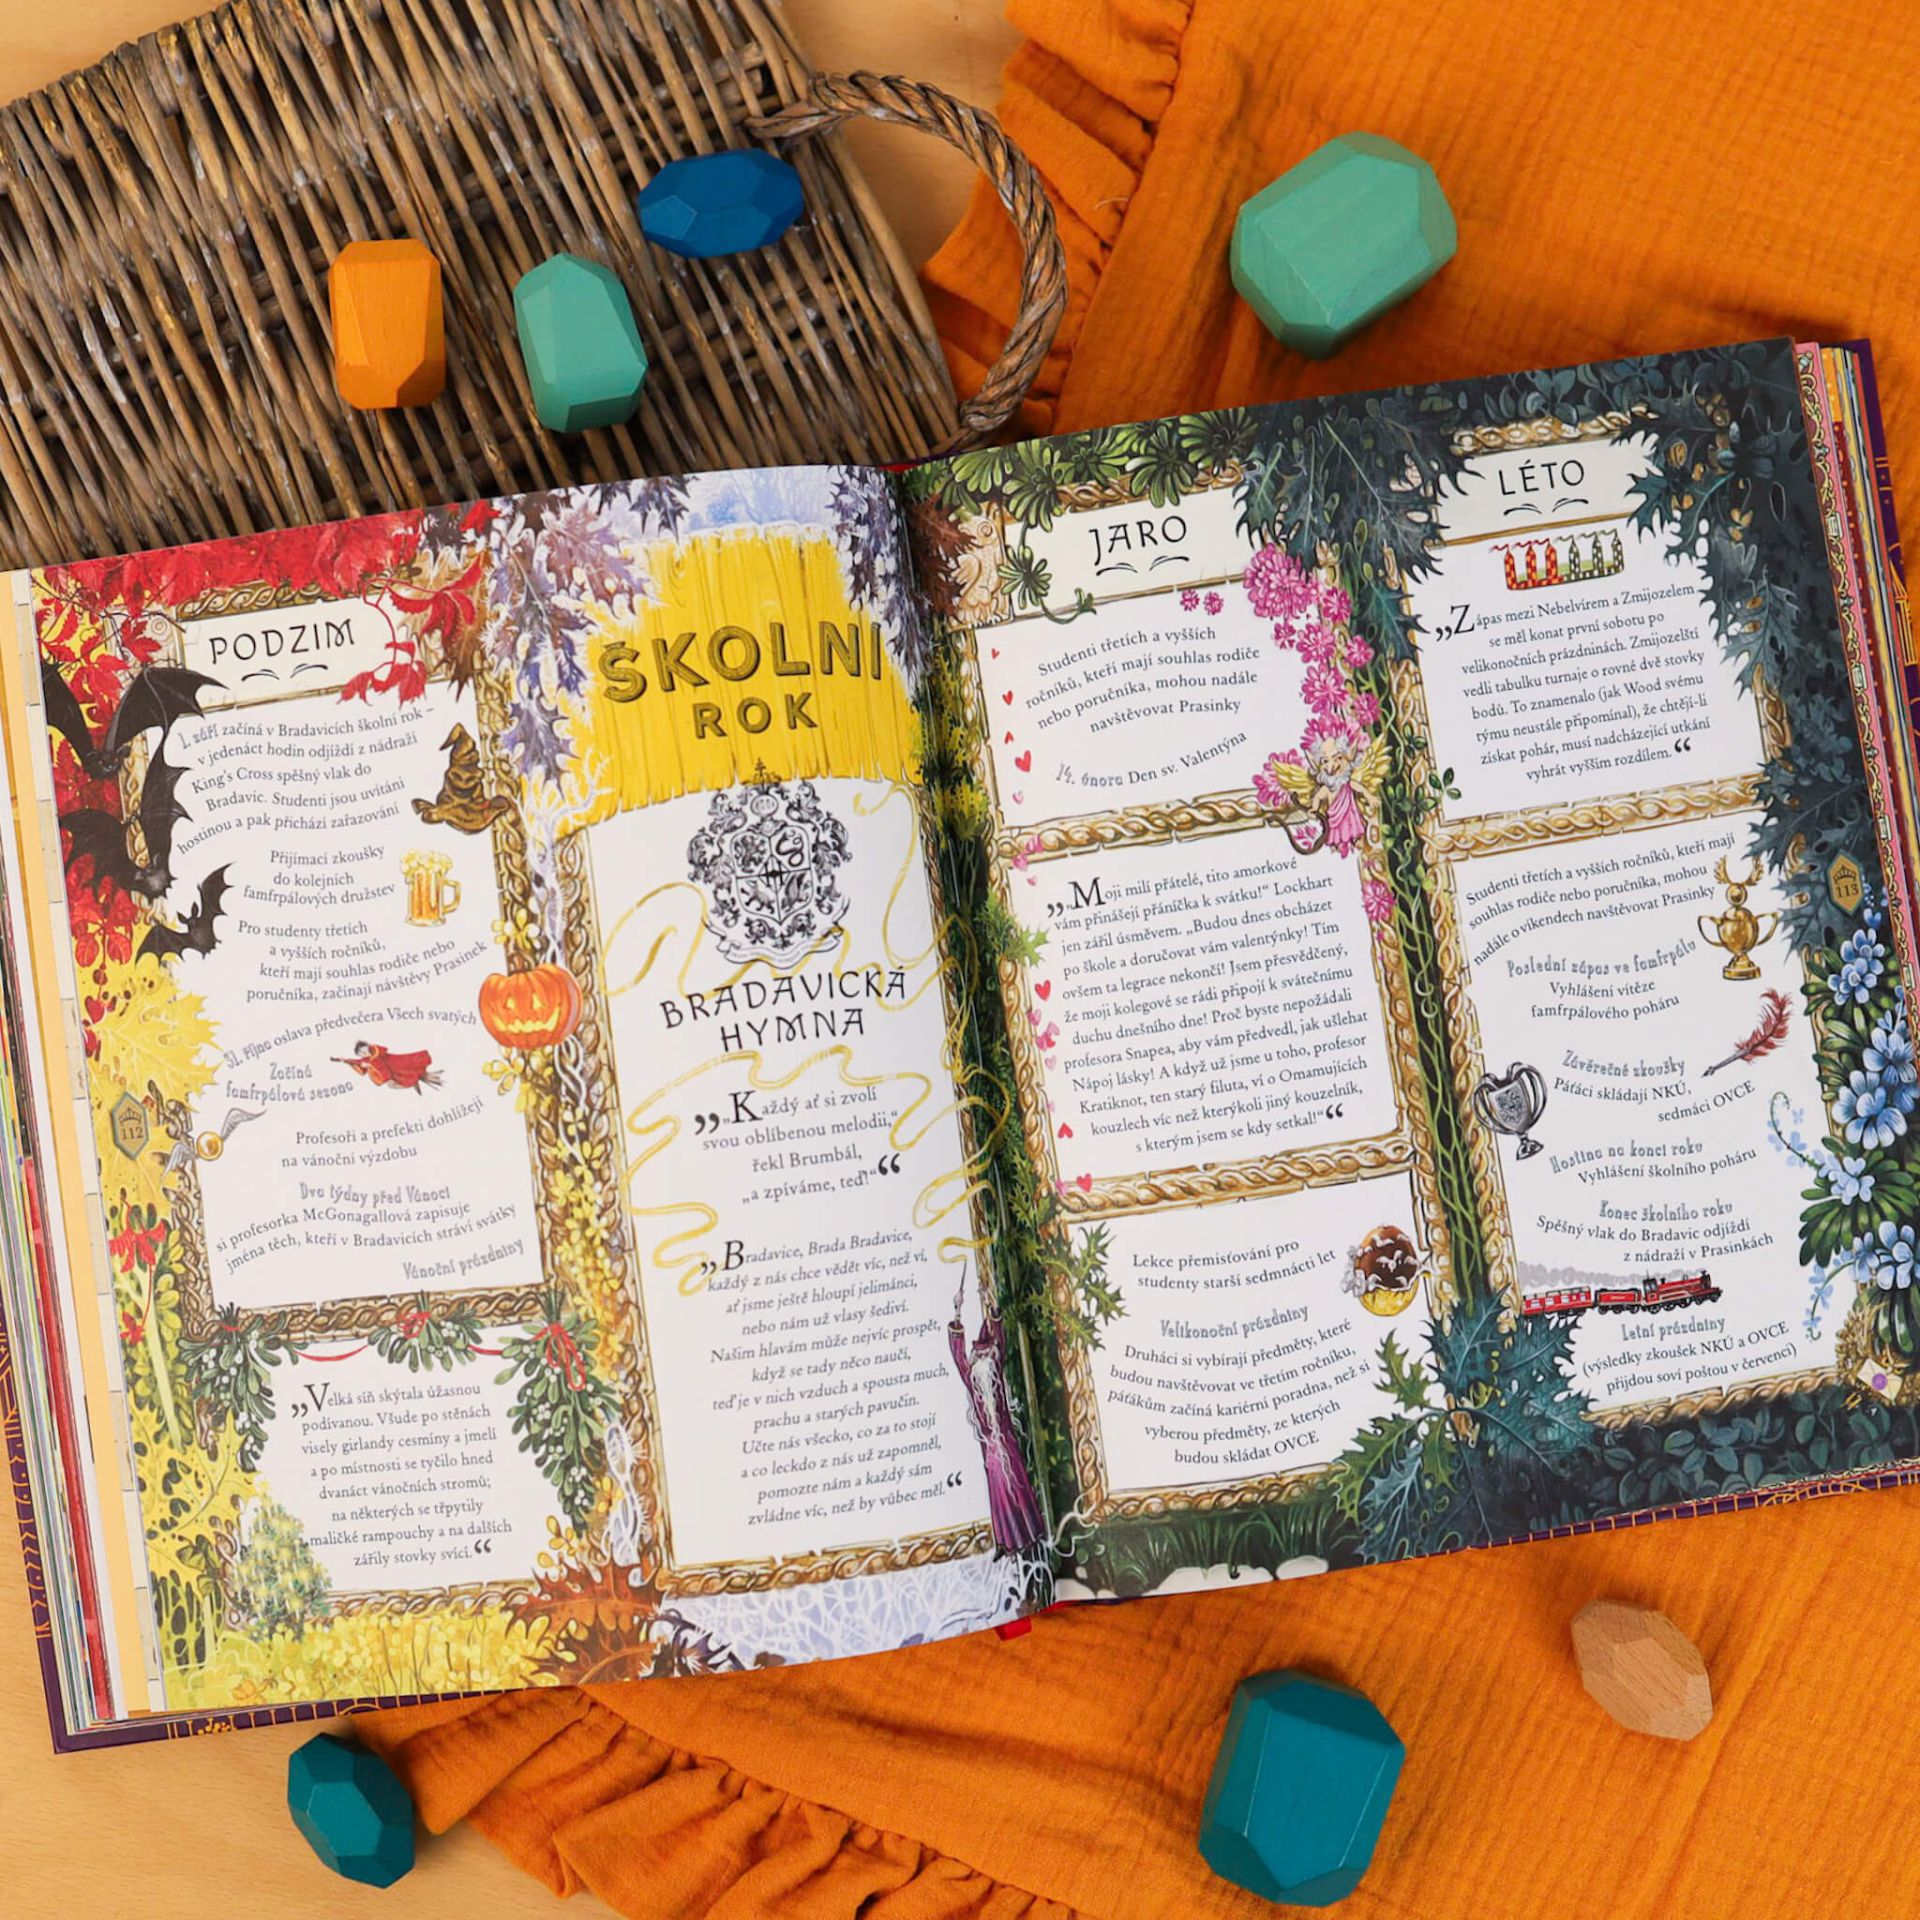 PODZIM
1. září začíná v Bradavicích školní rok –
v jedenáct hodin odjíždí z nádraží
King's Cross spěšný vlak do
Bradavic. Studenti jsou uvítáni
hostinou a pak přichází zařazování
Přijímací zkoušky
do kolejních
famfrpálových družstev
Pro studenty třetích
a vyšších ročníků,
kteří mají souhlas rodiče nebo
poručníka, začínají návštěvy Prasinek
31. října oslava předvečera Všech svatých
Začíná
famfrpálová sezona
Profesoři a prefekti dohlížejí
na vánoční výzdobu
Dva týdny před Vánoci
si profesorka McGonagallová zapisuje
jména těch, kteří v Bradavicích stráví svátky
Vánoční prázdniny
„Velká síň skýtala úžasnou
podívanou. Všude po stěnách
visely girlandy cesmíny a jmelí
a po místnosti se tyčilo hned
dvanáct vánočních stromů;
na některých se třpytily
maličké rampouchy a na dalších
zářily stovky svící.“
112
ŠKOLNÍ
ROK
BRADAVICKÁ
HYMNA
„„Každý ať si zvolí
svou oblíbenou melodii,“
řekl Brumbál,
„a zpíváme, teď!““
„Bradavice, Brada Bradavice,
každý z nás chce vědět víc, než ví,
ať jsme ještě hloupí jelimánci,
nebo nám už vlasy šediví.
Našim hlavám může nejvíc prospět,
když se tady něco naučí,
teď je v nich vzduch a spousta much,
prachu a starých pavučin.
Učte nás všecko, co za to stojí
a co leckdo z nás už zapomněl,
pomozte nám a každý sám
zvládne víc, než by vůbec měl.“
JARO
Studenti třetích a vyšších
ročníků, kteří mají souhlas rodiče
nebo poručníka, mohou nadále
navštěvovat Prasinky
14. února Den sv. Valentýna
„„Moji milí přátelé, tito amorkové
vám přinášejí přáníčka k svátku!“ Lockhart
jen zářil úsměvem. „Budou dnes obcházet
po škole a doručovat vám valentýnky! Tím
ovšem ta legrace nekončí! Jsem přesvědčený,
že moji kolegové se rádi připojí k svátečnímu
duchu dnešního dne! Proč byste nepožádali
profesora Snapea, aby vám předvedl, jak ušlehat
Nápoj lásky! A když už jsme u toho, profesor
Kratiknot, ten starý filuta, ví o Omamujících
kouzlech víc než kterýkoli jiný kouzelník,
s kterým jsem se kdy setkal!“
Lekce přemisťování pro
studenty starší sedmnácti let
Velikonoční prázdniny
Druháci si vybírají předměty, které
budou navštěvovat ve třetím ročníku,
páťákům začíná kariérní poradna, než si
vyberou předměty, ze kterých
budou skládat OVCE
LÉTO
„Zápas mezi Nebelvírem a Zmijozelem
se měl konat první sobotu po
velikonočních prázdninách. Zmijozelští
vedli tabulku turnaje o rovné dvě stovky
bodů. To znamenalo (jak Wood svému
týmu neustále připomínal), že chtějí-li
získat pohár, musí nadcházející utkání
vyhrát vyšším rozdílem.“
Studenti třetích a vyšších ročníků, kteří mají
souhlas rodiče nebo poručníka, mohou
nadále o víkendech navštěvovat Prasinky
Poslední zápas ve famfrpálu
Vyhlášení vítěze
famfrpálového poháru
Závěrečné zkoušky
Páťáci skládají NKÚ,
sedmáci OVCE
Hostina na konci roku
Vyhlášení školního poháru
Konec školního roku
Spěšný vlak do Bradavic odjíždí
z nádraží v Prasinkách
Letní prázdniny
(výsledky zkoušek NKÚ a OVCE
přijdou soví poštou v červenci)
113